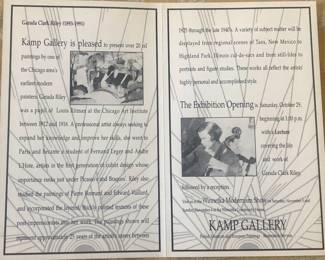 Garada Clark Riley (1893-1991)
Kamp Gallery is pleased to present over 20 oil
paintings by one of
the Chicago area's
earliest modern
painters. Garada Riley
was a pupil of Louis Ritman at the Chicago Art Institute
between 1912 and 1914. A professional artist always seeking to
expand her knowledge and improve her skills, she went to
Paris and became a student of Fernand Leger and Andre
L'Hote, artists in the first generation of cubist design whose
importance ranks just under Picasso's and Braques'. Riley also
studied the paintings of Pierre Bonnard and Edward Vuillard,
and incorporated the layered, thickly painted textures of these
post-impressionists into her work. The paintings shown will
represent approximately 25 years of the artist's career between
1925 through the late 1940's. A variety of subject matter will be
displayed from regional scenes of Taos, New Mexico to
Highland Park, Illinois cul-de-sacs and from still-lifes to
portraits and figure studies. These works all reflect the artist's
highly personal and accomplished style.
The Exhibition Opening is Saturday, October 29,
beginning at 1:00 p.m.
with a Lecture
covering the life
and work of
Garada Clark Riley
followed by a reception.
Visit us at the Winnetka Modernism Show on Saturday, November 5 and
Sunday, November 6 at the Winnetka Community House.
KAMP GALLERY